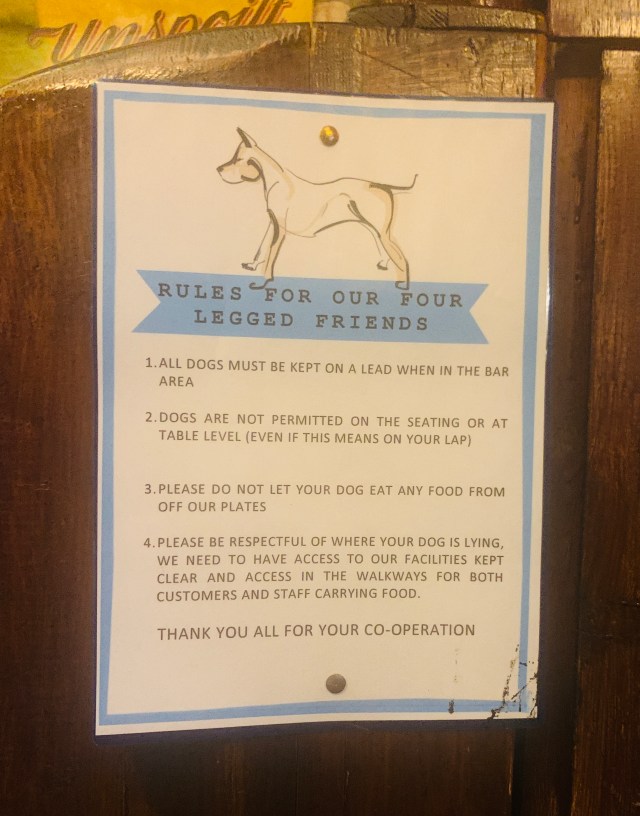 Unspoilt
RULES FOR OUR FOUR
LEGGED FRIENDS
1. ALL DOGS MUST BE KEPT ON A LEAD WHEN IN THE BAR
AREA
2. DOGS ARE NOT PERMITTED ON THE SEATING OR AT
TABLE LEVEL (EVEN IF THIS MEANS ON YOUR LAP)
3. PLEASE DO NOT LET YOUR DOG EAT ANY FOOD FROM
OFF OUR PLATES
4. PLEASE BE RESPECTFUL OF WHERE YOUR DOG IS LYING,
WE NEED TO HAVE ACCESS TO OUR FACILITIES KEPT
CLEAR AND ACCESS IN THE WALKWAYS FOR BOTH
CUSTOMERS AND STAFF CARRYING FOOD.
THANK YOU ALL FOR YOUR CO-OPERATION